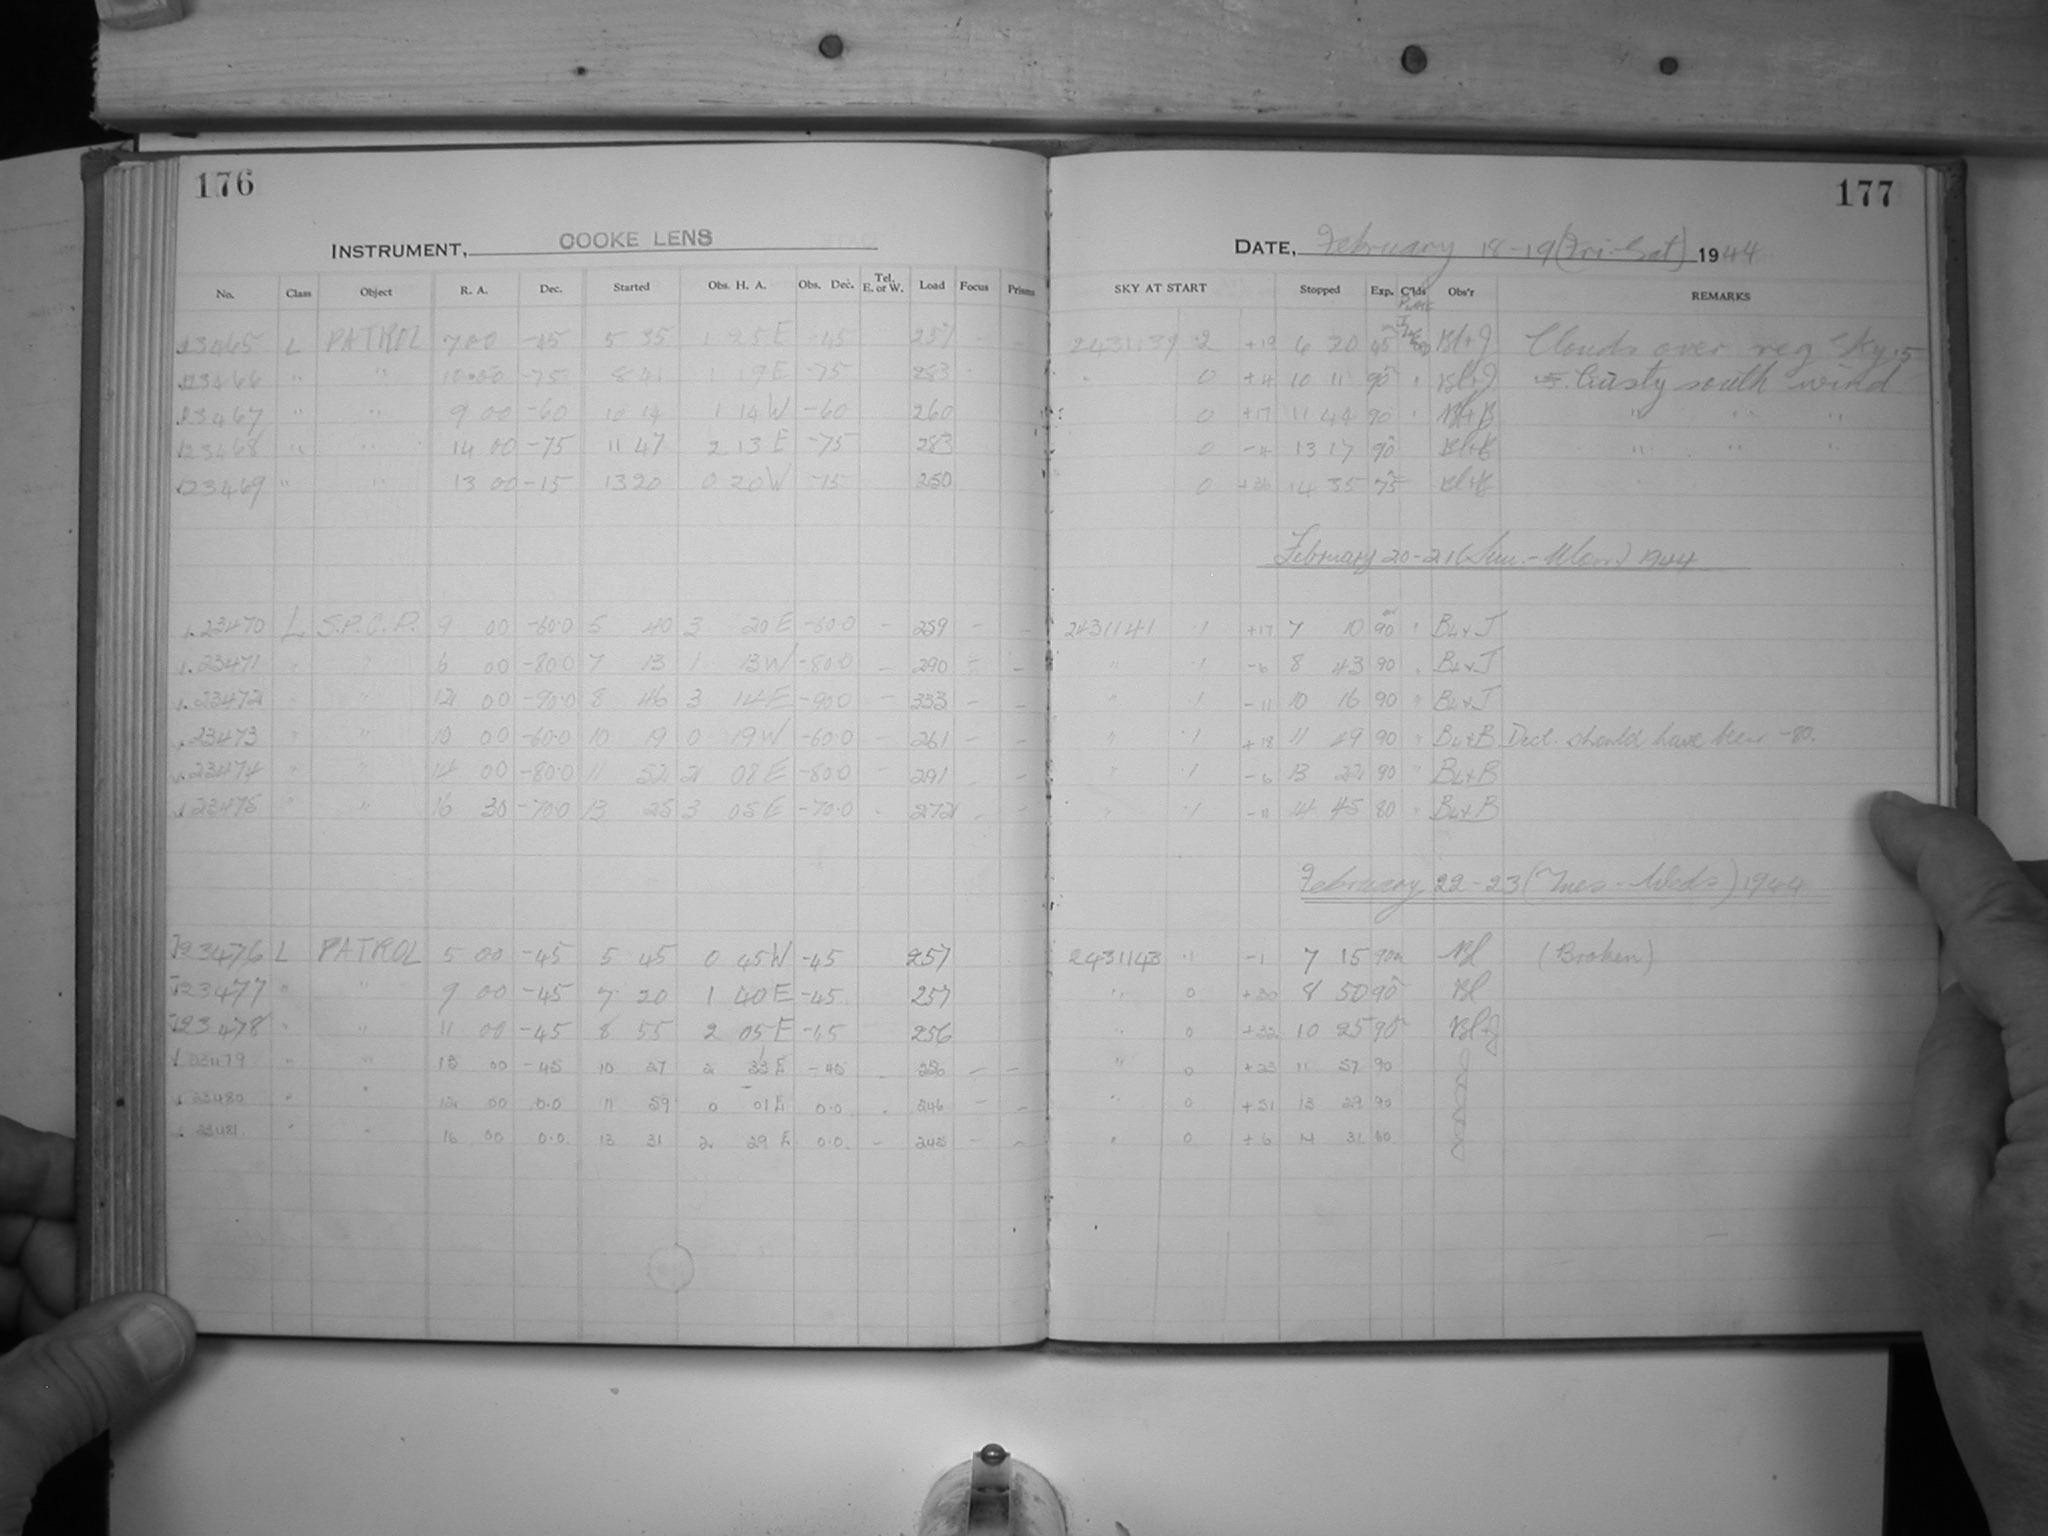 176
INSTRUMENT, COOKE LENS
No. Class Object R. A. Dec. Started Obs. H. A. Obs. Dec. Tel. E. or W. Load Focus Prisms
23465 L PATROL 7 00 -45 5 35 1 25 E -45 257
23466 " " 10 00 -75 8 41 1 19 E -75 283
23467 " " 9 00 -60 10 14 1 14 W -60 260
23468 " " 14 00 -75 11 47 2 13 E -75 283
23469 " " 13 00 -15 13 20 0 20 W -15 250
23470 L S.P.C.P. 9 00 -60.0 5 40 3 20 E -60.0 - 259 - -
23471 " " 6 00 -80.0 7 13 1 13 W -80.0 - 290 - -
23472 " " 12 00 -90.0 8 46 3 14 E -90.0 - 333 - -
23473 " " 10 00 -60.0 10 19 0 19 W -60.0 - 261 - -
23474 " " 14 00 -80.0 11 52 2 08 E -80.0 - 291 - -
23475 " " 16 30 -70.0 13 25 3 05 E -70.0 - 272 - -
23476 L PATROL 5 00 -45 5 45 0 45 W -45 257
23477 " " 9 00 -45 7 20 1 40 E -45 257
23478 " " 11 00 -45 8 55 2 05 E -45 256
23479 " " 13 00 -45 10 27 2 33 E -45 - 256 - -
23480 " " 12 00 0.0 11 59 0 01 E 0.0 - 246 - -
23481 " " 16 00 0.0 13 31 2 29 E 0.0 - 245 - -
177
DATE, February 18-19 (Fri-Sat) 1944
SKY AT START Stopped Exp. C'lds Obs'r REMARKS
2431139 .2 +19 6 20 45 Bl+J Clouds over reg Sky .5
0 +4 10 11 90 Bl+J Gusty south wind
0 +17 11 44 90 Bl+B " " "
0 13 17 90 Bl+B " " "
0 +36 14 35 75 Bl+B
February 20-21 (Sun.-Mon.) 1944
2431141 .1 +17 7 10 90 BL+J
" .1 -6 8 43 90 BL+J
" .1 -11 10 16 90 BL+J
" .1 +18 11 49 90 BL+B Decl. should have been -80.
" .1 -6 13 22 90 BL+B
" .1 -11 14 45 80 BL+B
February 22-23 (Tues-Weds) 1944
2431143 .1 -1 7 15 90 Bl (Broken)
" 0 +30 8 50 90 Bl
" 0 +32 10 25 90 Bl+J
" 0 +23 11 57 90
" 0 +31 13 29 90
" 0 +6 14 31 60